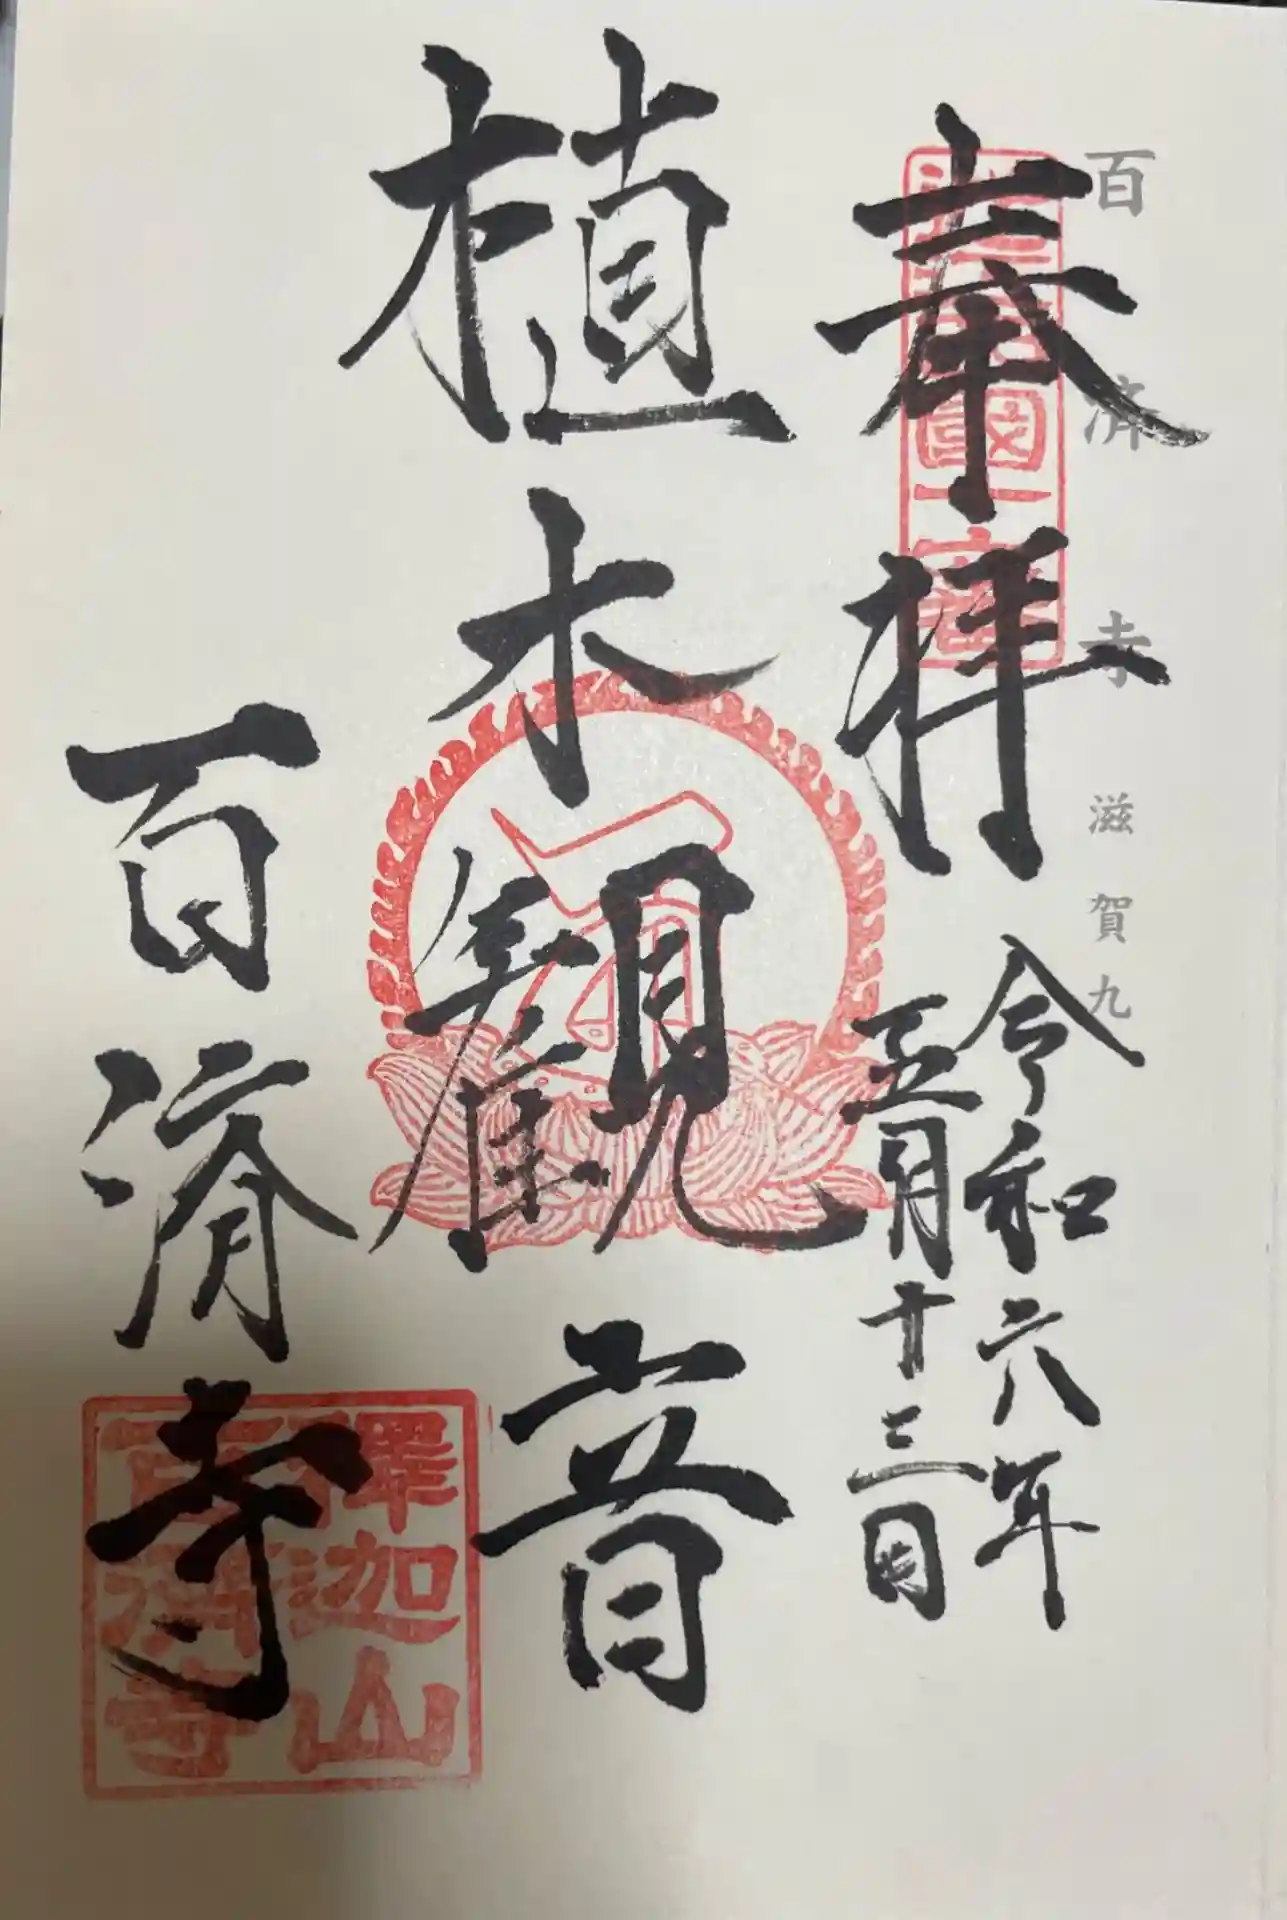 百済寺 滋賀九
奉拝
令和六年
五月廿三日
植木観音
百済寺
釋迦山
百濟寺